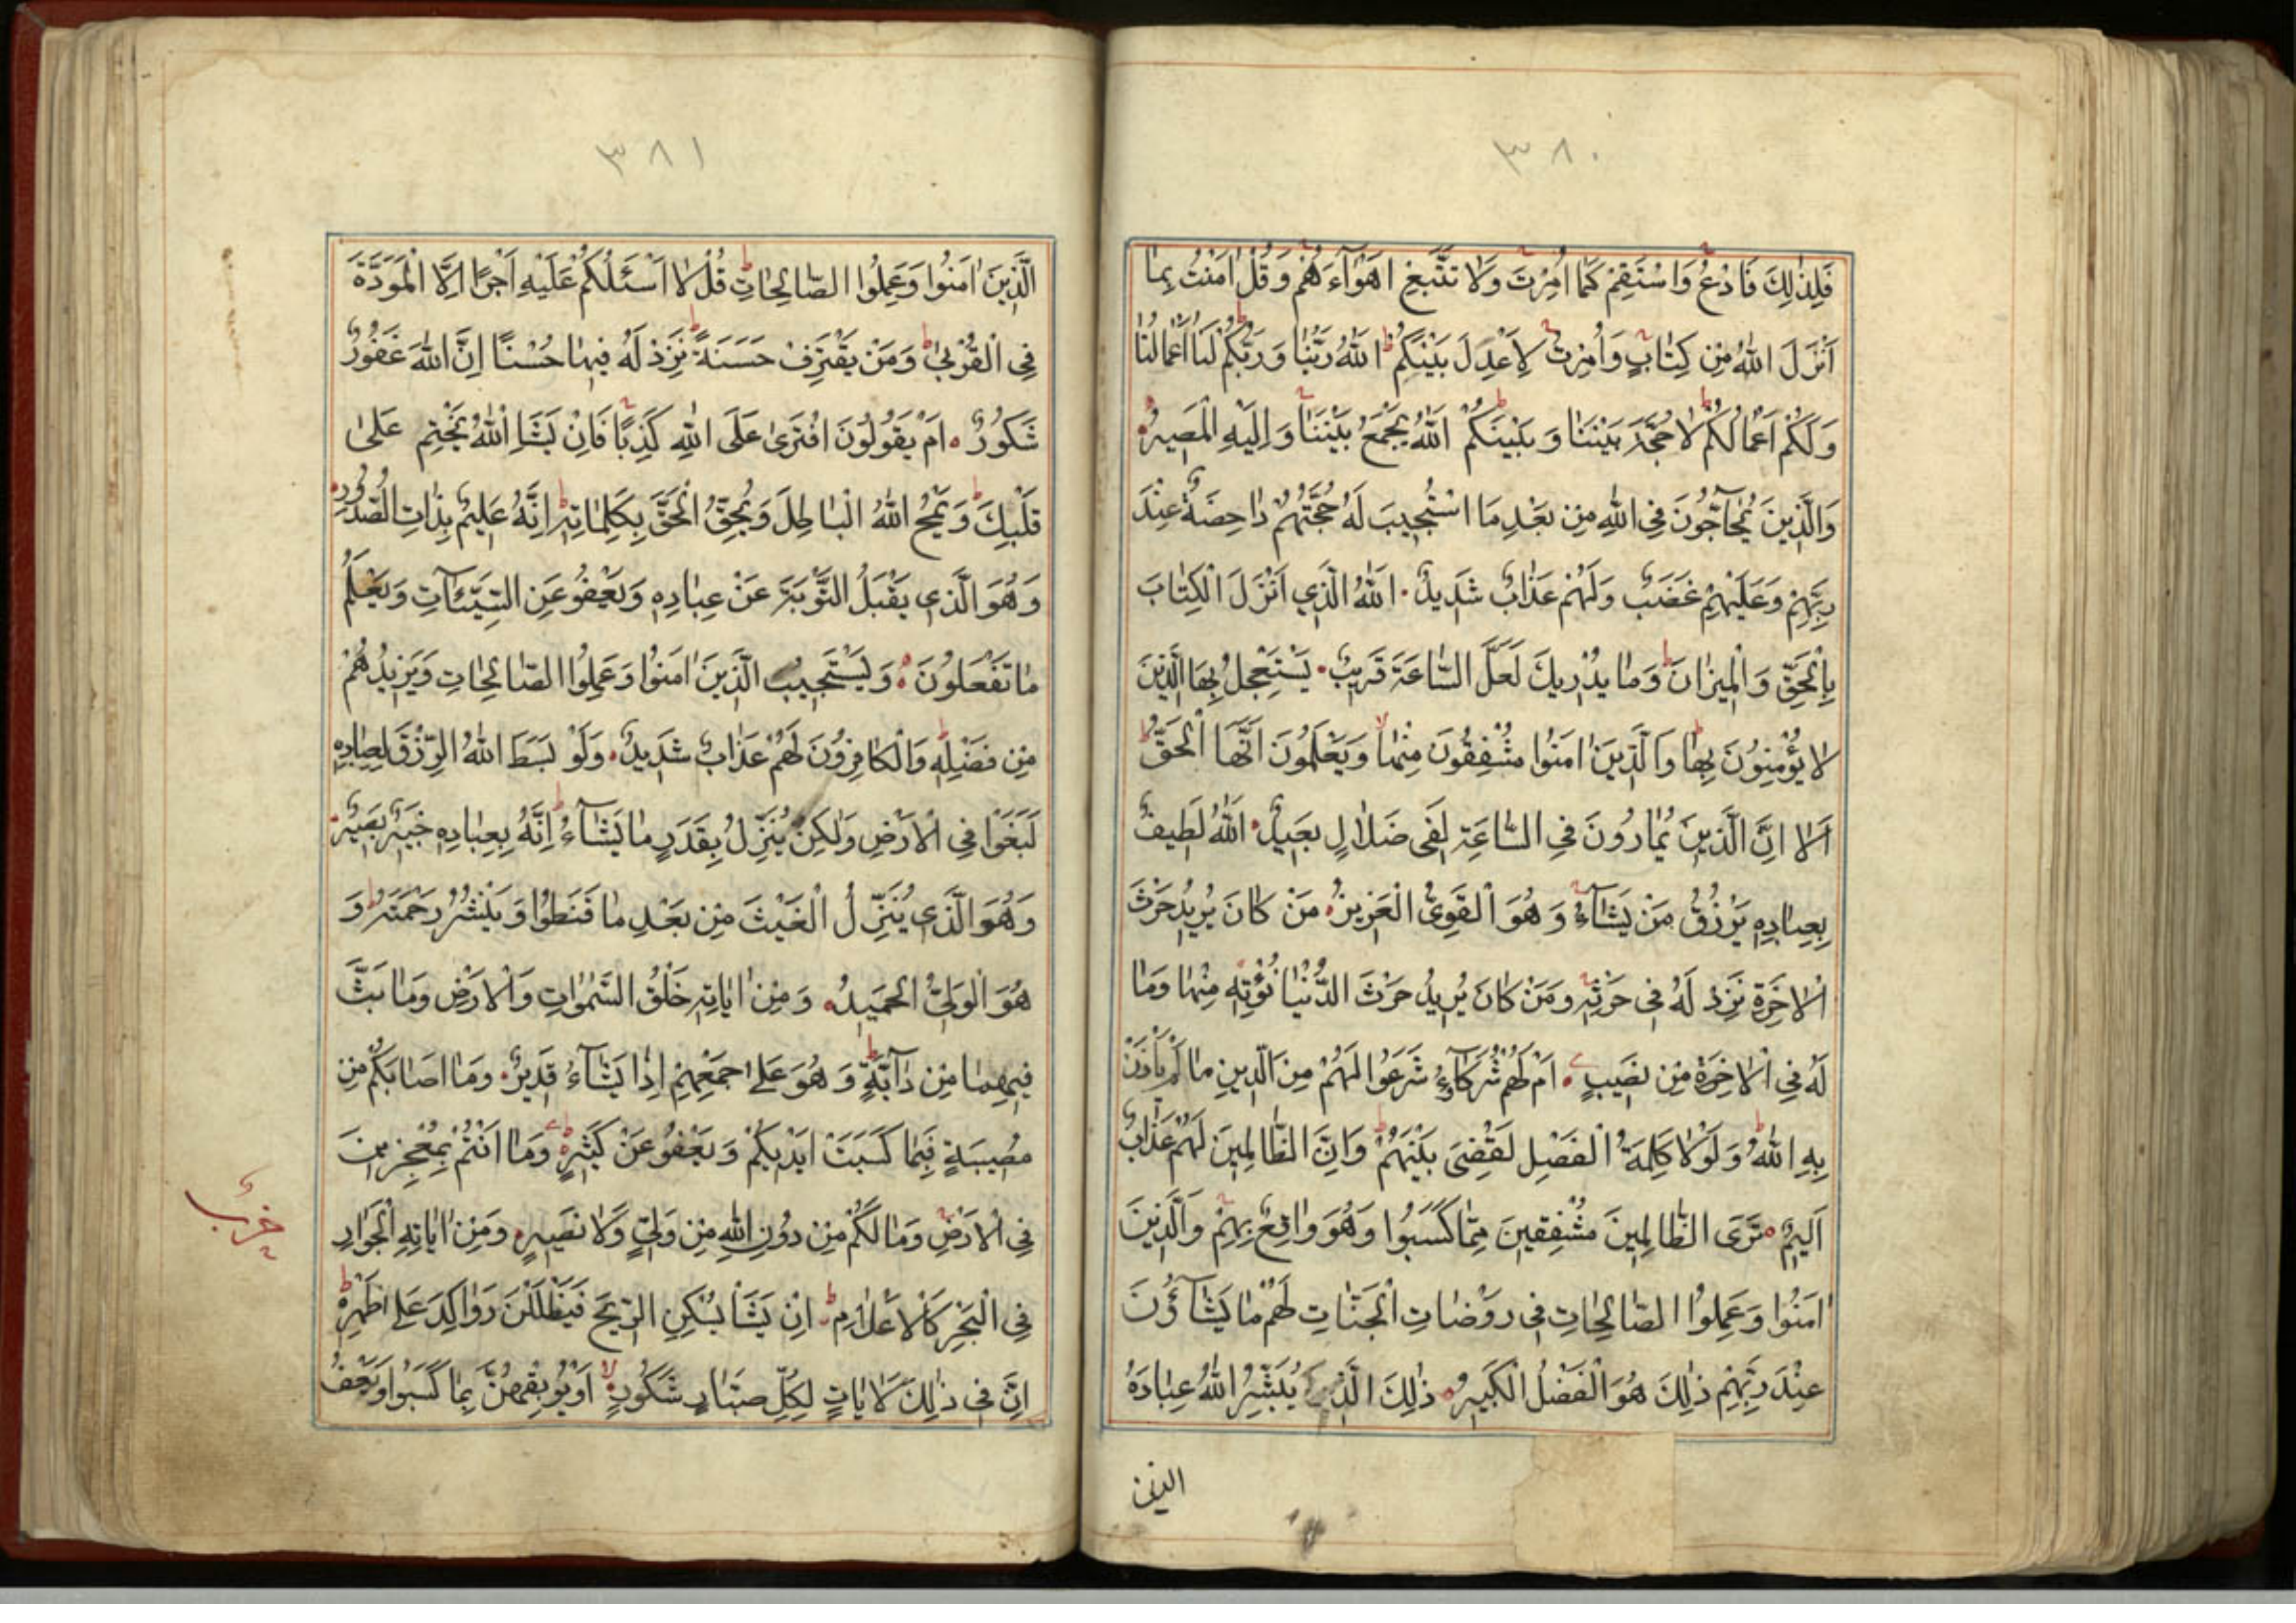 ٣٨٠
فَلِذٰلِكَ فَادْعُ وَاسْتَقِمْ كَمٰا اُمِرْتَ وَلٰا تَتَّبِعْ اَهْوٰآءَهُمْ وَقُلْ اٰمَنْتُ بِمٰا
اَنْزَلَ اللّٰهُ مِنْ كِتٰابٍ وَاُمِرْتُ لِاَعْدِلَ بَيْنَكُمْ ط اَللّٰهُ رَبُّنٰا وَرَبُّكُمْ لَنٰا اَعْمٰالُنٰا
وَلَكُمْ اَعْمٰالُكُمْ لٰا حُجَّةَ بَيْنَنٰا وَبَيْنَكُمْ اَللّٰهُ يَجْمَعُ بَيْنَنٰا وَاِلَيْهِ الْمَصيرُ
وَالَّذِينَ يُحٰآجُّونَ فِي اللّٰهِ مِنْ بَعْدِ مَا اسْتُجيبَ لَهُ حُجَّتُهُمْ دٰاحِضَةٌ عِنْدَ
رَبِّهِمْ وَعَلَيْهِمْ غَضَبٌ وَلَهُمْ عَذٰابٌ شَديدٌ اَللّٰهُ الَّذِي اَنْزَلَ الْكِتٰابَ
بِالْحَقِّ وَالْميزٰانَ ط وَمٰا يُدْريكَ لَعَلَّ السّٰاعَةَ قَريبٌ يَسْتَعْجِلُ بِهَا الَّذينَ
لٰا يُؤْمِنُونَ بِهٰا وَالَّذينَ اٰمَنُوا مُشْفِقُونَ مِنْهٰا وَيَعْلَمُونَ اَنَّهَا الْحَقُّ
اَلٰا اِنَّ الَّذينَ يُمٰارُونَ فِي السّٰاعَةِ لَفي ضَلٰالٍ بَعيدٍ اَللّٰهُ لَطيفٌ
بِعِبٰادِهِ يَرْزُقُ مَنْ يَشٰآءُ وَهُوَ الْقَوِيُّ الْعَزيزُ مَنْ كٰانَ يُريدُ حَرْثَ
الْاٰخِرَةِ نَزِدْ لَهُ في حَرْثِهِ وَمَنْ كٰانَ يُريدُ حَرْثَ الدُّنْيٰا نُؤْتِهِ مِنْهٰا وَمٰا
لَهُ فِي الْاٰخِرَةِ مِنْ نَصيبٍ اَمْ لَهُمْ شُرَكٰٓاءُ شَرَعُوا لَهُمْ مِنَ الدّينِ مٰا لَمْ يَأْذَنْ
بِهِ اللّٰهُ ط وَلَوْلٰا كَلِمَةُ الْفَصْلِ لَقُضِيَ بَيْنَهُمْ ط وَاِنَّ الظّٰالِمينَ لَهُمْ عَذٰابٌ
اَليمٌ تَرَى الظّٰالِمينَ مُشْفِقينَ مِمّٰا كَسَبُوا وَهُوَ وٰاقِعٌ بِهِمْ وَالَّذينَ
اٰمَنُوا وَعَمِلُوا الصّٰالِحٰاتِ في رَوْضٰاتِ الْجَنّٰاتِ لَهُمْ مٰا يَشٰآؤُنَ
عِنْدَ رَبِّهِمْ ذٰلِكَ هُوَ الْفَضْلُ الْكَبيرُ ذٰلِكَ الَّذي يُبَشِّرُ اللّٰهُ عِبٰادَهُ
الذين
٣٨١
الَّذينَ اٰمَنُوا وَعَمِلُوا الصّٰالِحٰاتِ ط قُلْ لٰا اَسْئَلُكُمْ عَلَيْهِ اَجْرًا اِلَّا الْمَوَدَّةَ
فِي الْقُرْبىٰ ط وَمَنْ يَقْتَرِفْ حَسَنَةً نَزِدْ لَهُ فيهٰا حُسْنًا اِنَّ اللّٰهَ غَفُورٌ
شَكُورٌ اَمْ يَقُولُونَ افْتَرىٰ عَلَى اللّٰهِ كَذِبًا فَاِنْ يَشَاِ اللّٰهُ يَخْتِمْ عَلىٰ
قَلْبِكَ ط وَيَمْحُ اللّٰهُ الْبٰاطِلَ وَيُحِقُّ الْحَقَّ بِكَلِمٰاتِهِ ط اِنَّهُ عَليمٌ بِذٰاتِ الصُّدُورِ
وَهُوَ الَّذي يَقْبَلُ التَّوْبَةَ عَنْ عِبٰادِهِ وَيَعْفُو عَنِ السَّيِّئٰآتِ وَيَعْلَمُ
مٰا تَفْعَلُونَ وَيَسْتَجيبُ الَّذينَ اٰمَنُوا وَعَمِلُوا الصّٰالِحٰاتِ وَيَزيدُهُمْ
مِنْ فَضْلِهِ ط وَالْكٰافِرُونَ لَهُمْ عَذٰابٌ شَديدٌ وَلَوْ بَسَطَ اللّٰهُ الرِّزْقَ لِعِبٰادِهِ
لَبَغَوْا فِي الْاَرْضِ وَلٰكِنْ يُنَزِّلُ بِقَدَرٍ مٰا يَشٰآءُ ط اِنَّهُ بِعِبٰادِهِ خَبيرٌ بَصيرٌ
وَهُوَ الَّذي يُنَزِّلُ الْغَيْثَ مِنْ بَعْدِ مٰا قَنَطُوا وَيَنْشُرُ رَحْمَتَهُ ط وَ
هُوَ الْوَلِيُّ الْحَميدُ وَمِنْ اٰيٰاتِهِ خَلْقُ السَّمٰوٰاتِ وَالْاَرْضِ وَمٰا بَثَّ
فيهِمٰا مِنْ دٰآبَّةٍ ط وَهُوَ عَلىٰ جَمْعِهِمْ اِذٰا يَشٰآءُ قَديرٌ وَمٰا اَصٰابَكُمْ مِنْ
مُصيبَةٍ فَبِمٰا كَسَبَتْ اَيْديكُمْ وَيَعْفُو عَنْ كَثيرٍ وَمٰا اَنْتُمْ بِمُعْجِزينَ
فِي الْاَرْضِ وَمٰا لَكُمْ مِنْ دُونِ اللّٰهِ مِنْ وَلِيٍّ وَلٰا نَصيرٍ وَمِنْ اٰيٰاتِهِ الْجَوٰارِ
فِي الْبَحْرِ كَالْاَعْلٰامِ ط اِنْ يَشَأْ يُسْكِنِ الرّيحَ فَيَظْلَلْنَ رَوٰاكِدَ عَلىٰ ظَهْرِهِ ط
اِنَّ في ذٰلِكَ لَاٰيٰاتٍ لِكُلِّ صَبّٰارٍ شَكُورٍ لا اَوْ يُوبِقْهُنَّ بِمٰا كَسَبُوا وَيَعْفُ